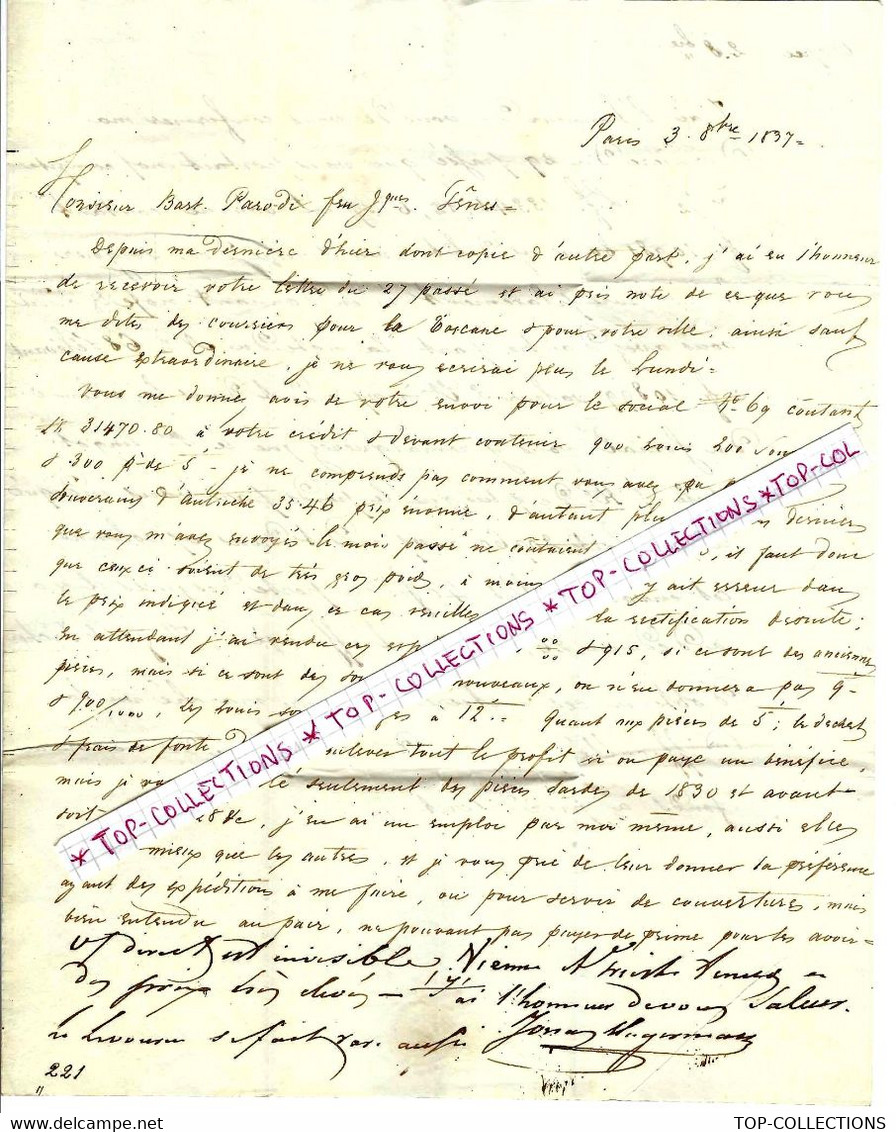 Paris 3. 8bre 1837=
Monsieur Bart. Parodi feu Jques. Gênes=
Depuis ma dernière d'hier dont copie d'autre part, j'ai eu l'honneur
de recevoir votre lettre du 27 passé et ai pris note de ce que vous
me dites des courriers pour la Toscane & pour votre ville; ainsi sauf
cause extraordinaire, je ne vous écrirai plus le Lundi=
Vous me donnez avis de votre envoi pour le social No. 69 coutant
31470.80 à votre crédit & devant contenir 900 Louis 200
& 300 ps de 5 - je ne comprends pas comment vous avez pu
Souverains d'autriche 35.46 prix énorme, d'autant plus derniers
que vous m'avez envoyés le mois passé ne coutaient il faut donc
que ceux ci soient de très gros poids, à moins y ait erreur dans
le prix indiqué et dans ce cas veuillez la rectification desuite;
En attendant j'ai vendu ces & 915, si ce sont des anciennes
pièces, mais si ce sont des nouveaux, on n'en donnera pas 9-
& 900/1000, les Louis à 12.= Quant aux pièces de 5; le dechet
& frais de fonte tout le profit si on paye un bénéfice,
mais je seulement des pièces sardes de 1830 et avant
soit 28 &c, j'en ai un emploi par moi même, aussi
mieux que les autres, et je vous prie de leur donner la préférence
ayant des expéditions à me faire, ou pour servir de couvertures, mais
bien entendu au pair, ne pouvant pas payer de prime pour les avoir=
est invisible, Vienne & Trieste en
des prix très élevés - ai l'honneur de vous saluer.
Le Livourne se fait rare aussi Jonas Hagerman
221
* TOP-COLLECTIONS * TOP-COLLECTIONS * TOP-COLLECTIONS * TOP-COL
TOP-COLLECTIONS